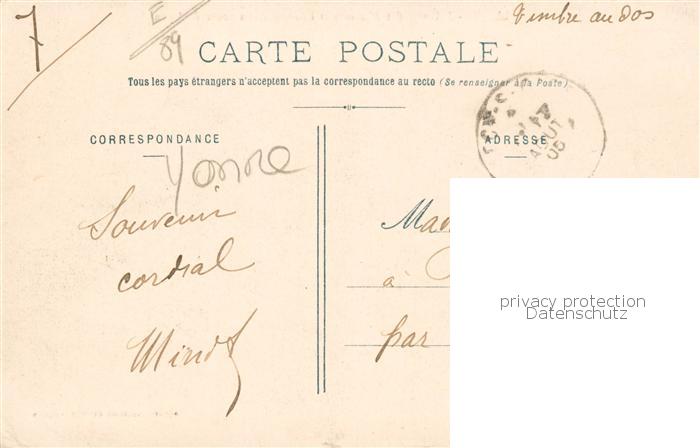 7
E
89
Timbre au dos
CARTE POSTALE
Tous les pays étrangers n'acceptent pas la correspondance au recto (Se renseigner à la Poste)
CORRESPONDANCE
ADRESSE
AOUT
05
Yonne
Souvenir
cordial
Mad
à
par
privacy protection
Datenschutz